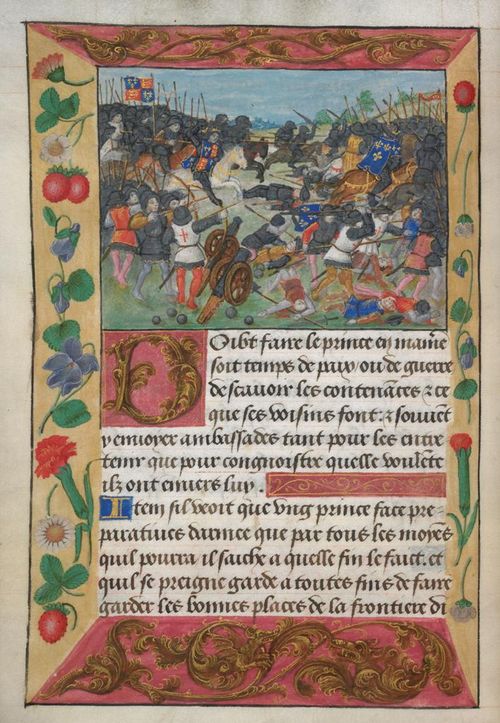 Doibt faire le prince en mariē
soit temps de paix ou de guerre
de scavoir les contenances & ce
que ses voisins font & souvent
y envoyer ambassades tant pour les entre
tenir que pour congnoistre quelle voulēte
ilz ont envers luy.
Item sil veoit que ung prince face pre-
paratives darmee que par tous les moyēs
quil pourra il saiche a quelle fin le faict, et
quil se preigne garde a toutes fins de faire
garder les bonnes places de la frontiere di